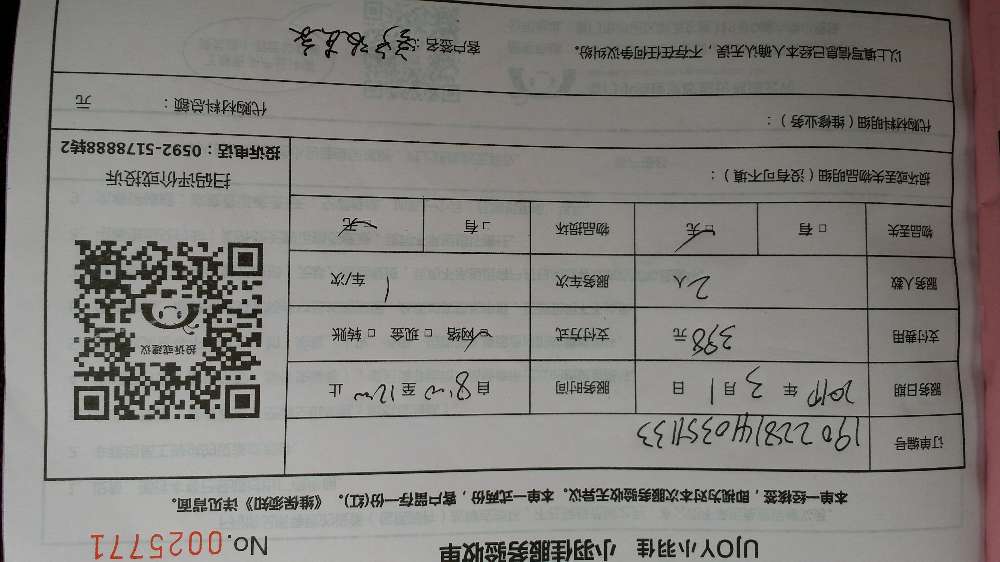 UJOY小羽佳 小羽佳服务验收单 No.0025771
本单一经核签，即视为对本次服务验收无异议。本单一式两份，客户留存一份(红)。《维保须知》详见背面。
订单编号
服务日期 2019年 3 月 1 日 服务时间 自 8:00 至 12:00 止
支付费用 398 元 支付方式 网络 □ 现金 □ 转账
服务人数 2 人 服务车次 1 车/次
物品丢失 □ 有 □ 无 物品损坏 □ 有 □ 无
投诉或建议
损坏或丢失物品明细（没有可不填）：
扫码评价或投诉
投诉电话：0592-5178888转2
代购材料明细（维修业务）：
代购材料总额： 元
以上填写信息已经本人确认无误，不存在任何争议纠纷。 客户签名：